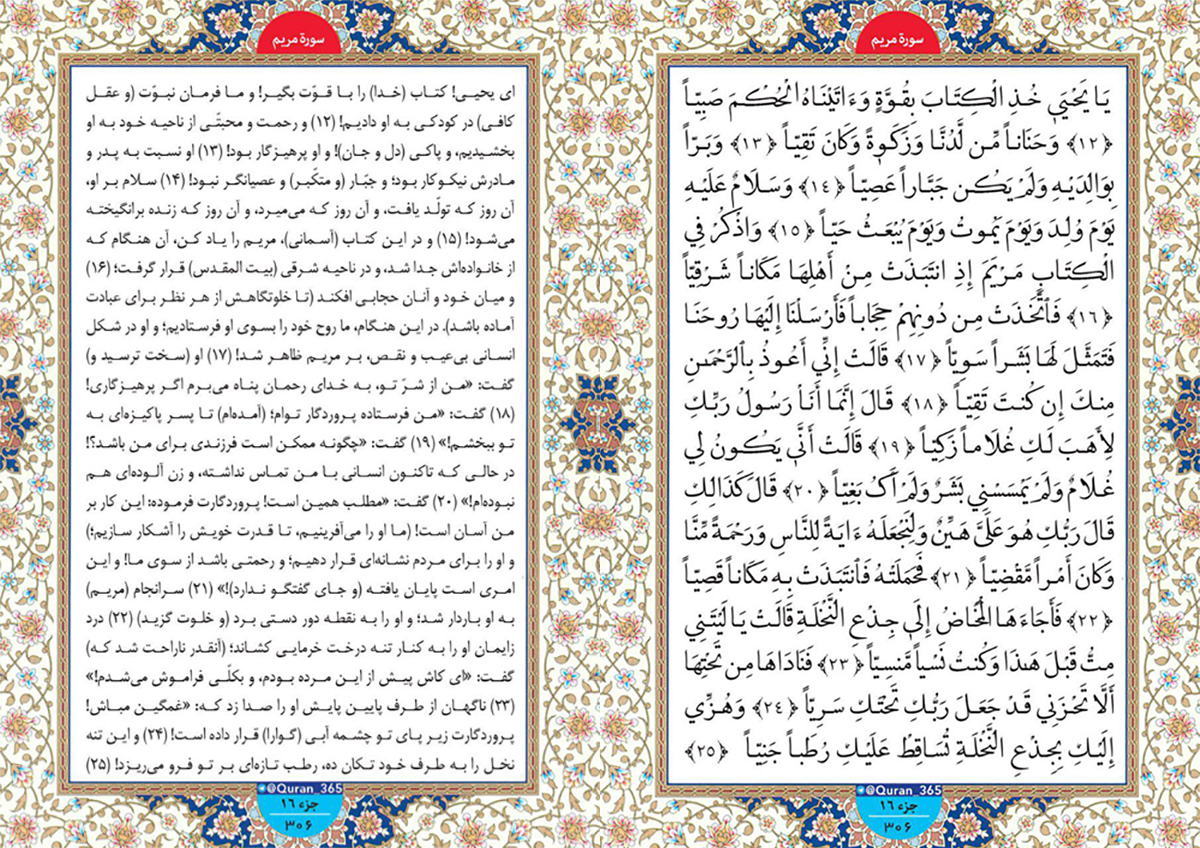 سورة مریم
يَا يَحْيَى خُذِ الْكِتَابَ بِقُوَّةٍ وَءَاتَيْنَاهُ الْحُكْمَ صَبِيّاً
﴿١٢﴾ وَحَنَاناً مِّن لَّدُنَّا وَزَكَوةً وَكَانَ تَقِيّاً ﴿١٣﴾ وَبَرّاً
بِوَالِدَيْهِ وَلَمْ يَكُن جَبَّاراً عَصِيّاً ﴿١٤﴾ وَسَلَامٌ عَلَيْهِ
يَوْمَ وُلِدَ وَيَوْمَ يَمُوتُ وَيَوْمَ يُبْعَثُ حَيّاً ﴿١٥﴾ وَاذْكُرْ فِي
الْكِتَابِ مَرْيَمَ إِذِ انتَبَذَتْ مِنْ أَهْلِهَا مَكَاناً شَرْقِيّاً
﴿١٦﴾ فَاتَّخَذَتْ مِن دُونِهِمْ حِجَاباً فَأَرْسَلْنَا إِلَيْهَا رُوحَنَا
فَتَمَثَّلَ لَهَا بَشَراً سَوِيّاً ﴿١٧﴾ قَالَتْ إِنِّي أَعُوذُ بِالرَّحْمَنِ
مِنكَ إِن كُنتَ تَقِيّاً ﴿١٨﴾ قَالَ إِنَّمَا أَنَا رَسُولُ رَبِّكِ
لِأَهَبَ لَكِ غُلَاماً زَكِيّاً ﴿١٩﴾ قَالَتْ أَنَّى يَكُونُ لِي
غُلَامٌ وَلَمْ يَمْسَسْنِي بَشَرٌ وَلَمْ أَكُ بَغِيّاً ﴿٢٠﴾ قَالَ كَذَالِكِ
قَالَ رَبُّكِ هُوَ عَلَيَّ هَيِّنٌ وَلِنَجْعَلَهُ ءَايَةً لِلنَّاسِ وَرَحْمَةً مِّنَّا
وَكَانَ أَمْراً مَّقْضِيّاً ﴿٢١﴾ فَحَمَلَتْهُ فَانتَبَذَتْ بِهِ مَكَاناً قَصِيّاً
﴿٢٢﴾ فَأَجَاءَهَا الْمَخَاضُ إِلَى جِذْعِ النَّخْلَةِ قَالَتْ يَا لَيْتَنِي
مِتُّ قَبْلَ هَذَا وَكُنتُ نَسْياً مَّنسِيّاً ﴿٢٣﴾ فَنَادَاهَا مِن تَحْتِهَا
أَلَّا تَحْزَنِي قَدْ جَعَلَ رَبُّكِ تَحْتَكِ سَرِيّاً ﴿٢٤﴾ وَهُزِّي
إِلَيْكِ بِجِذْعِ النَّخْلَةِ تُسَاقِطْ عَلَيْكِ رُطَباً جَنِيّاً ﴿٢٥﴾
@Quran_365
جزء ۱۶
۳۰۶
سورة مریم
ای یحیی! کتاب (خدا) را با قوّت بگیر! و ما فرمان نبوّت (و عقل
کافی) در کودکی به او دادیم! (۱۲) و رحمت و محبتّی از ناحیه خود به او
بخشیدیم، و پاکی (دل و جان)! و او پرهیزگار بود! (۱۳) او نسبت به پدر و
مادرش نیکوکار بود؛ و جبّار (و متکّبر) و عصیانگر نبود! (۱۴) سلام بر او،
آن روز که تولّد یافت، و آن روز که می‌میرد، و آن روز که زنده برانگیخته
می‌شود! (۱۵) و در این کتاب (آسمانی)، مریم را یاد کن، آن هنگام که
از خانواده‌اش جدا شد، و در ناحیه شرقی (بیت المقدس) قرار گرفت؛ (۱۶)
و میان خود و آنان حجابی افکند (تا خلوتگاهش از هر نظر برای عبادت
آماده باشد). در این هنگام، ما روح خود را بسوی او فرستادیم؛ و او در شکل
انسانی بی‌عیب و نقص، بر مریم ظاهر شد! (۱۷) او (سخت ترسید و)
گفت: «من از شرّ تو، به خدای رحمان پناه می‌برم اگر پرهیزگاری!
(۱۸) گفت: «من فرستاده پروردگار توام؛ (آمده‌ام) تا پسر پاکیزه‌ای به
تو ببخشم!» (۱۹) گفت: «چگونه ممکن است فرزندی برای من باشد؟!
در حالی که تاکنون انسانی با من تماس نداشته، و زن آلوده‌ای هم
نبوده‌ام!» (۲۰) گفت: «مطلب همین است! پروردگارت فرموده: این کار بر
من آسان است! (ما او را می‌آفرینیم، تا قدرت خویش را آشکار سازیم؛)
و او را برای مردم نشانه‌ای قرار دهیم؛ و رحمتی باشد از سوی ما! و این
امری است پایان یافته (و جای گفتگو ندارد)!» (۲۱) سرانجام (مریم)
به او باردار شد؛ و او را به نقطه دور دستی برد (و خلوت گزید) (۲۲) درد
زایمان او را به کنار تنه درخت خرمایی کشاند؛ (آنقدر ناراحت شد که)
گفت: «ای کاش پیش از این مرده بودم، و بکلّی فراموش می‌شدم!»
(۲۳) ناگهان از طرف پایین پایش او را صدا زد که: «غمگین مباش!
پروردگارت زیر پای تو چشمه آبی (گوارا) قرار داده است! (۲۴) و این تنه
نخل را به طرف خود تکان ده، رطب تازه‌ای بر تو فرو می‌ریزد! (۲۵)
@Quran_365
جزء ۱۶
۳۰۶